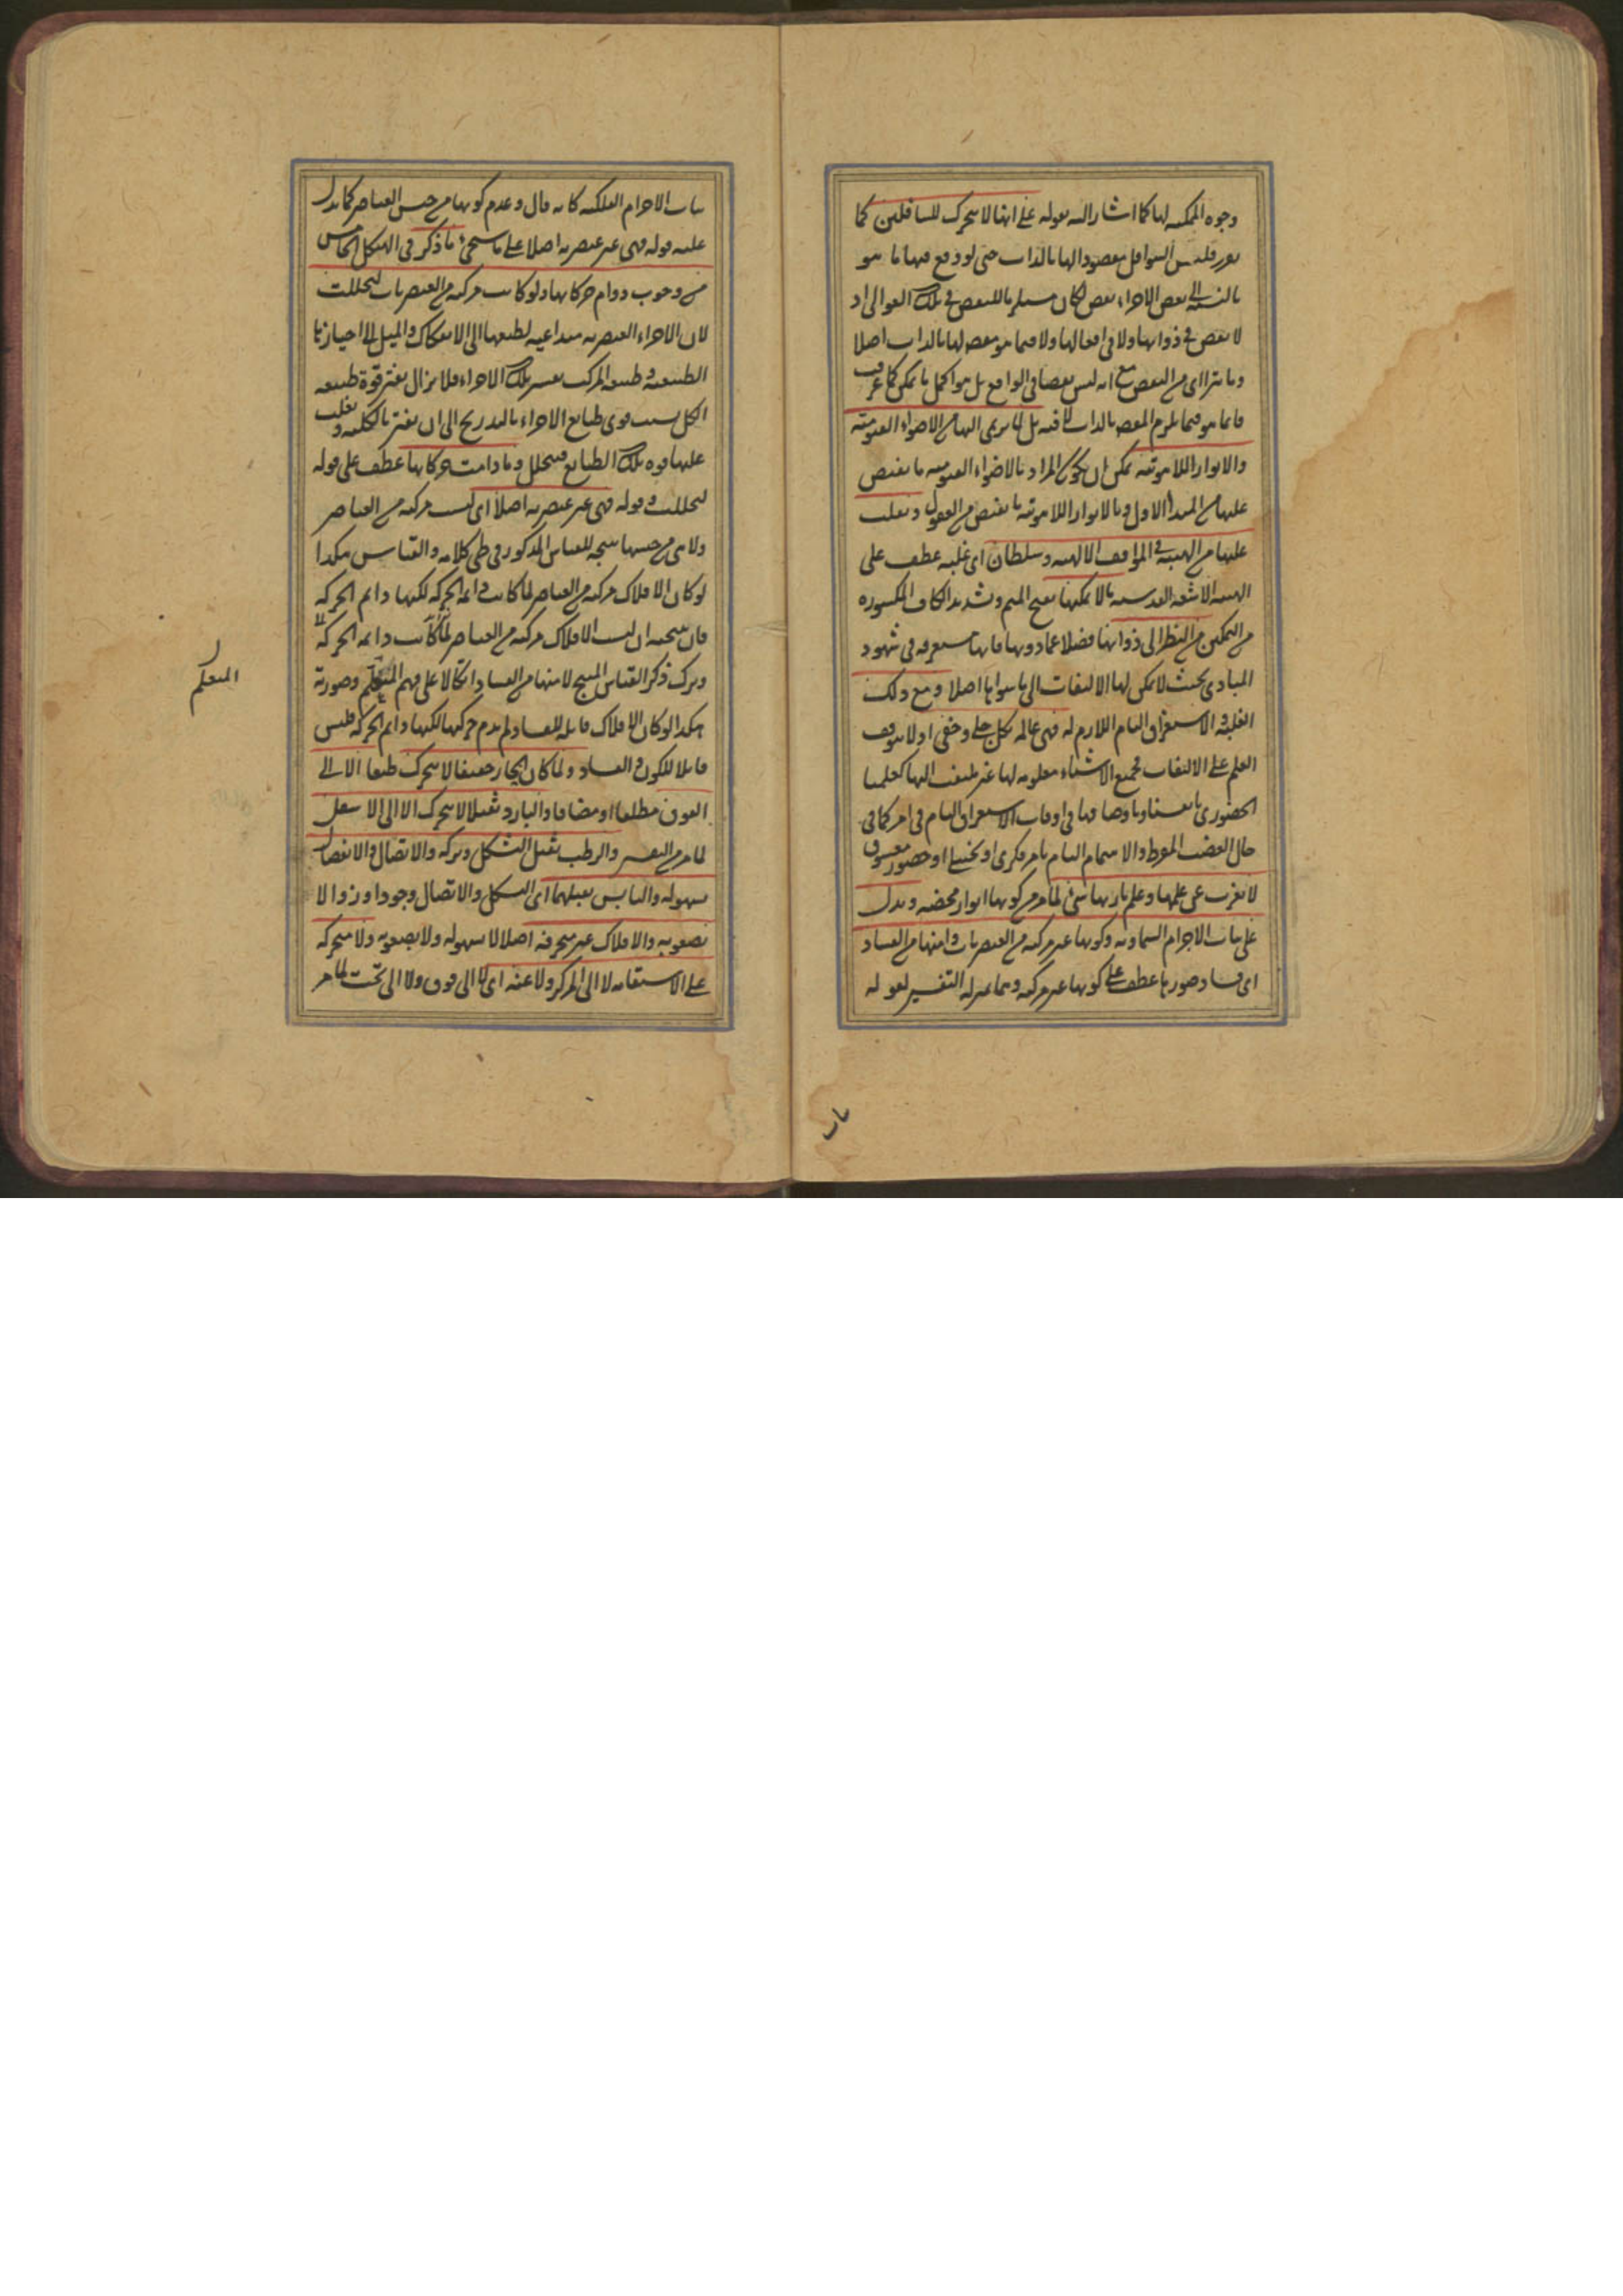 وجوه الممكنة لها كما اشار اليه بقوله على انها لا يتحرك للسافلين كما
تقرر فليس السوافل مقصودا لها بالذات حتى لو وقع فيها ما هو
بالنسبة الى بعض الاجزاء نقص لكان مستلزما للنقص في تلك العوالى اذ
لا نقص في ذواتها ولا في افعالها ولا فيما هو مقصد لها بالذات اصلا
وما يتراأى من النقص مع انه ليس نقصا في الواقع بل هو اكمل ما يمكن كما عرف
فانما هو فيما يلزم المقصد بالذات لا فيه بل لما يرى اليها من الاضواء القيومية
والانوار اللاهوتية يمكن ان يكون المراد بالاضواء القيومية ما يفيض
عليها من المبدأ الاول وبالانوار اللاهوتية ما يفيض من العقول ويغلب
عليها من الهيبة في المواقف الالهية وسلطان اى غلبة عطف على
الهيبة الاشعة القدسية ما لا يمكنها بفتح الميم وتشديد الكاف المكسورة
من التمكين من النظر الى ذواتها فضلا عما دونها فانها مستغرقة في شهود
المبادى بحيث لا يمكن لها الالتفات الى ما سواها اصلا ومع ذلك
الغلبة والاستغراق التام اللازم له فهى عالمة بكل جلى وخفى اذ لا يتوقف
العلم على الالتفات فجميع الاشياء معلومة لها غير ملتفت اليها كعلمنا
الحضورى بانفسنا وباوصافنا في اوقات الاستغراق التام في امر كما في
حال الغضب المفرط والاهتمام التام بامر فكرى او تخييلى او حضور معشوق
لا يعزب عن علمها وعلم باريها شئ لما مر من كونها انوار محضة ويدل
على ثبات الاجرام السماوية وكونها غير مركبة من العنصريات وامنها من الفساد
اى فساد صورها عطف على كونها غير مركبة وهما بمنزلة التفسير لقوله
ثبات
ثبات الاجرام الفلكية كانه قال وعدم كونها من جنس العناصر كما يدل
عليه قوله فهى غير عنصرية اصلا على ما سيجئ ما ذكر في الهيكل الخامس
من وجوب دوام حركاتها ولو كانت مركبة من العنصريات لتحللت
لان الاجزاء العنصرية متداعية لطبعها الى الانفكاك والميل الى احيازها
الطبيعية وطبيعة المركب يقسر تلك الاجزاء فلا يزال يفتر قوة طبيعة
الكل بسبب قوى طبايع الاجزاء بالتدريج الى ان يفتر بالكلية ويغلب
عليها قوة تلك الطبايع فيتحلل وما دامت حركاتها عطف على قوله
لتحللت وقوله فهى غير عنصرية اصلا اى ليست مركبة من العناصر
ولا هى من جنسها نتيجة للقياس المذكور في طى كلامه والقياس هكذا
لو كان الافلاك مركبة من العناصر لما كانت دائمة الحركة لكنها دايم الحركة
فان نتيجته ان ليست الافلاك مركبة من العناصر لما كانت دائمة الحركة
وترك ذكر القياس المنتج لامنها من الفساد اتكالا على فهم المتعلم وصورته
هكذا لو كان الافلاك قابلة للفساد لم يدم حركتها لكنها دايم الحركة فليس
قابلا للكون والفساد ولما كان الحار خفيفا لا يتحرك طبعا الا الى
الفوق مطلقا او مضافا والبارد ثقيلا لا يتحرك الا الى الاسفل
لما مر من التفسير والرطب يقبل التشكل وتركه والاتصال والانفصال
بسهولة واليابس يقبلهما اى الشكل والاتصال وجودا وزوالا
بصعوبة والافلاك غير منخرقة اصلا لا بسهولة ولا بصعوبة ولا متحركة
على الاستقامة لا الى المركز ولا عنه اى لا الى فوق ولا الى تحت لما مر
المتعلم